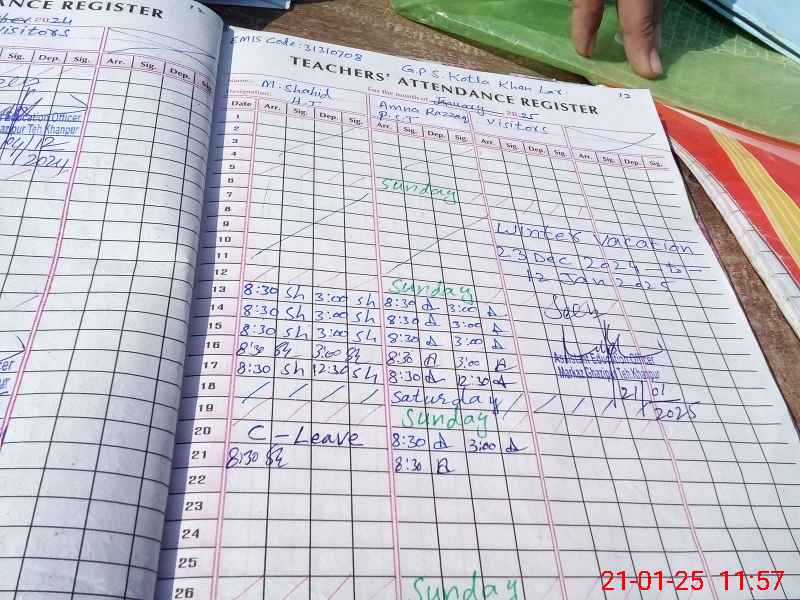 NCE REGISTER
12
ber 2024
Visitors
Sig. Dep. Sig. Arr. Sig. Dep. Sig.
Education Officer
azipur Teh. Khanpur
04/12
2024
EMIS Code: 31310708
G.P.S. Kotla Khan Lar.
12
TEACHERS' ATTENDANCE REGISTER
Name: M. Shahid For the month of January 2025
Designation: H.T Amna Razzaq Visitors
P.S.T
Date Arr. Sig. Dep. Sig. Arr. Sig. Dep. Sig. Arr. Sig. Dep. Sig. Arr. Sig. Dep. Sig.
1
2
3
4
5 Sunday
6
7
8
9 Winter Vacation
10 23 Dec 2024 to
11 12 Jan 2025
12 Sunday
13 8:30 Sh 3:00 Sh 8:30 A 3:00 A
14 8:30 Sh 3:00 Sh 8:30 A 3:00 A
15 8:30 Sh 3:00 Sh 8:30 A 3:00 A
16 8:30 3:00 8:30 A 3:00 A
17 8:30 Sh 12:30 Sh 8:30 A 12:30 A
Assistant Education Officer
Markaz Ghazipur Teh. Khanpur
21/01
2025
18 Saturday
19 Sunday
20 C-Leave 8:30 A 3:00 A
21 8:30 8:30 A
22
23
24
25
26 Sunday
21-01-25 11:57